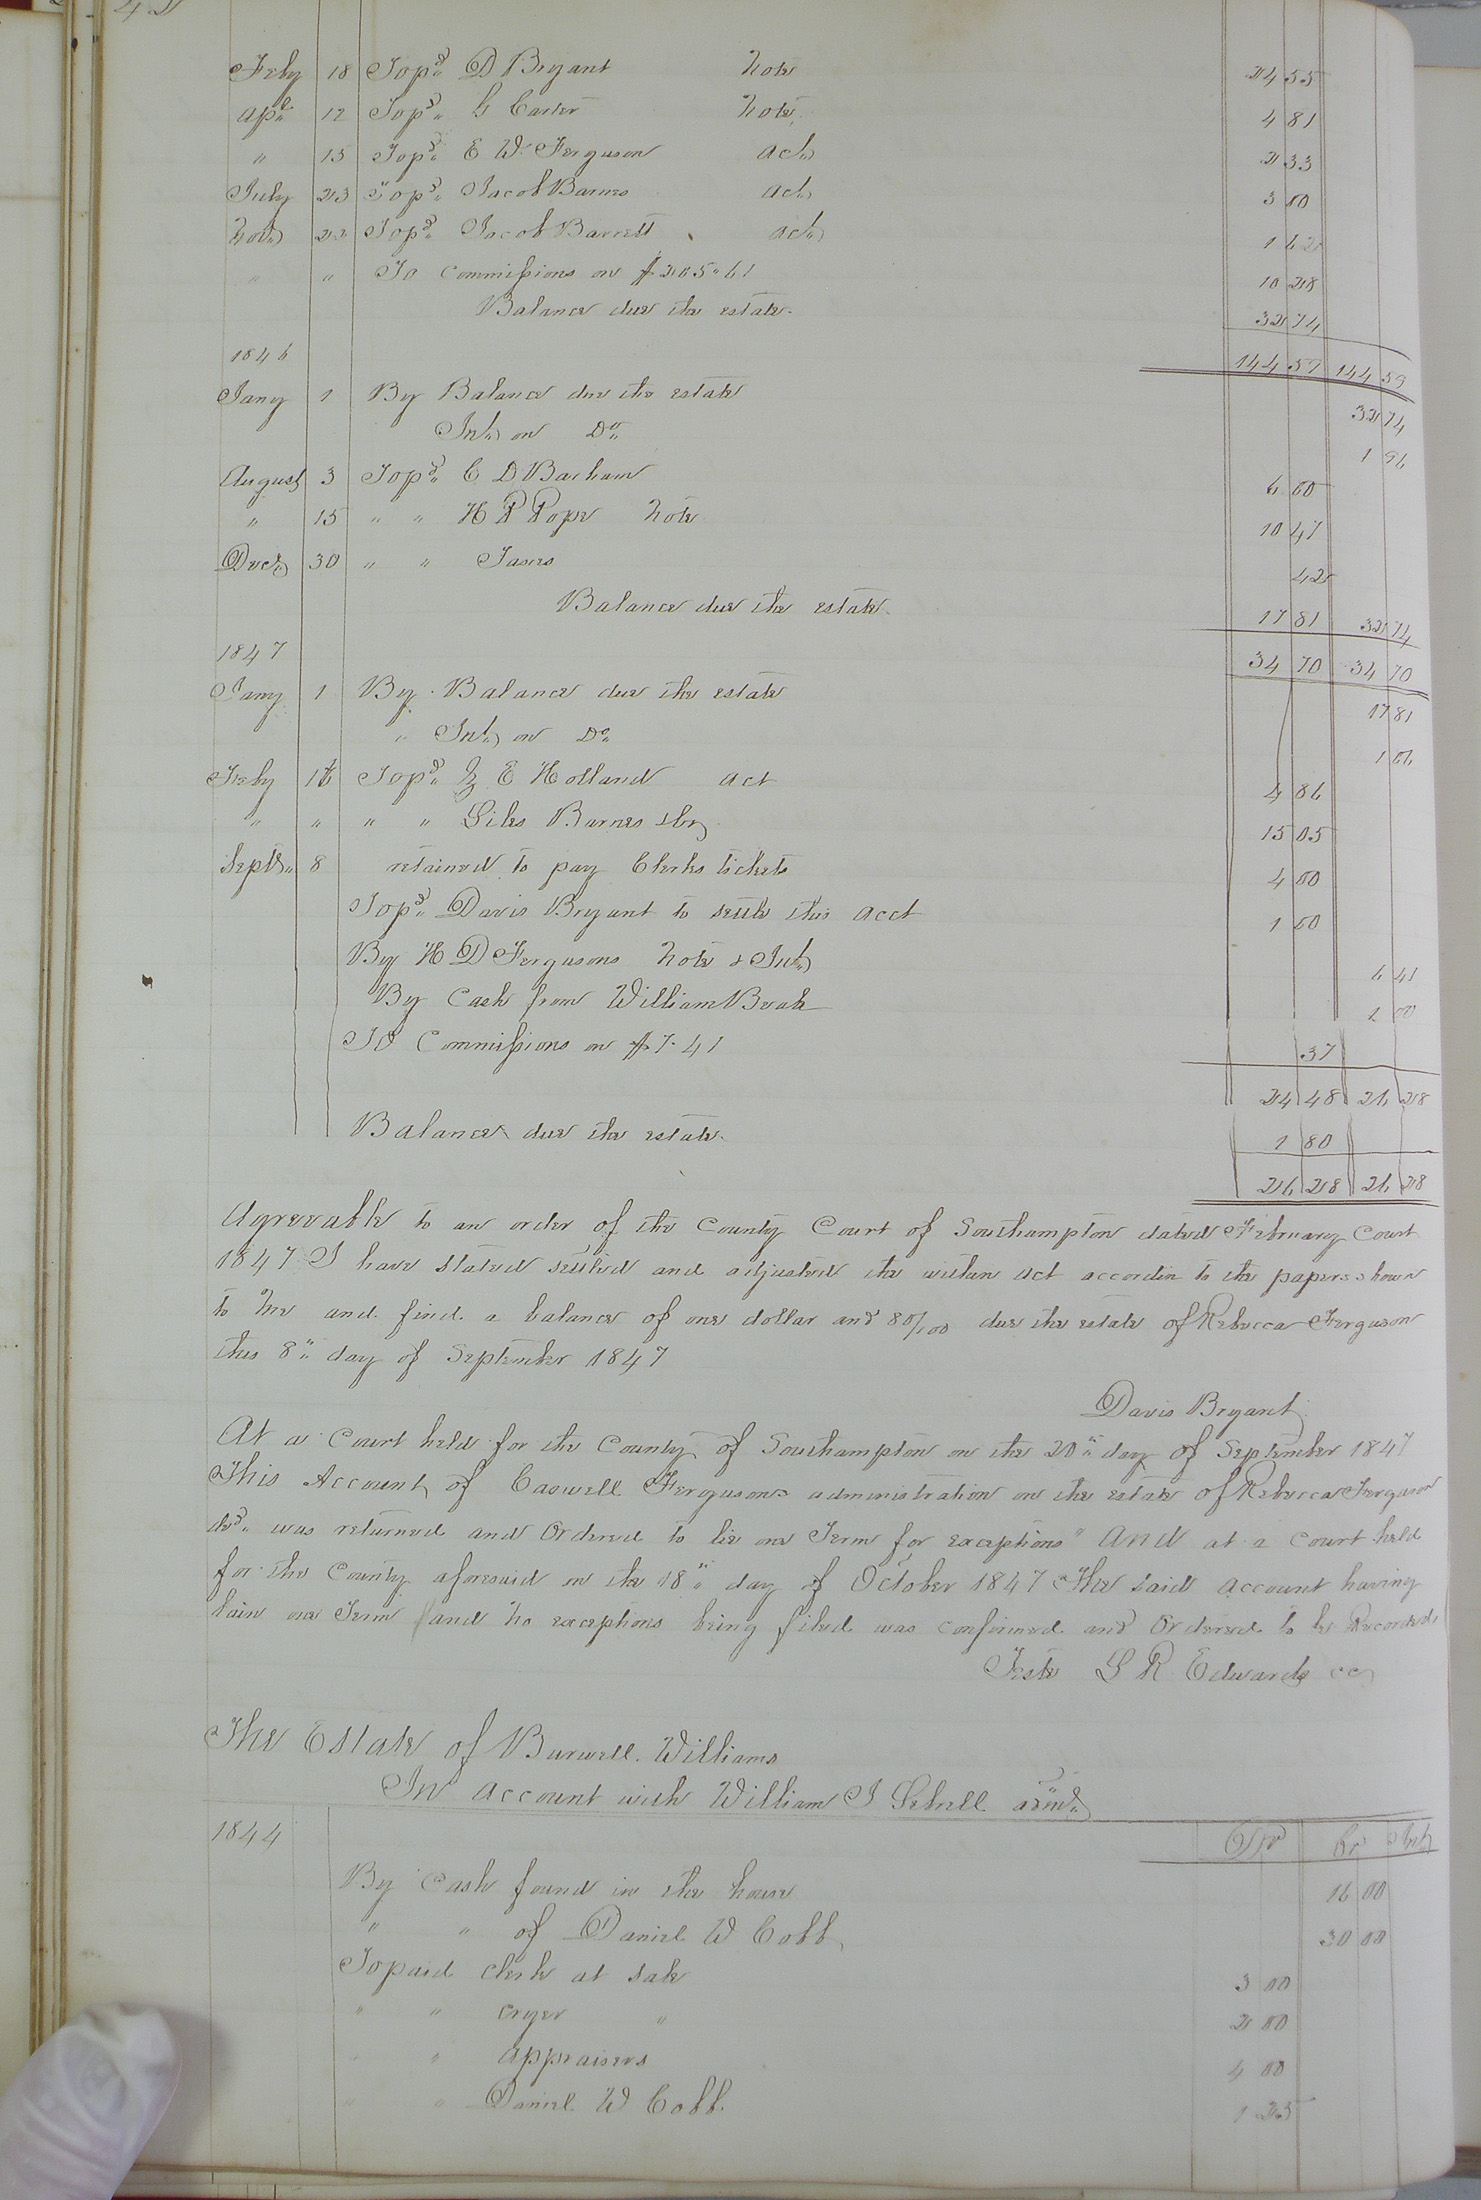 Feby 18 To pd. D Bryant Note 24 55
Apl. 12 To pd. G Carter Note 4 81
" 15 To pd. E W Ferguson act. 2 33
July 23 To pd. Jacob Barnes act. 3 00
Nov. 22 To pd. Jacob Barrett act. 1 62
" " To Commissions on $205.61 10 28
Balance due the estate. 32 74
1846 144 59 144 59
Jany 1 By Balance due the estate 32 74
Int. on Do. 1 96
August 3 To pd. C D Barham 6 00
" 15 " " H P Pope Note 10 47
Decr. 30 " " Taxes 42
Balance due the estate. 17 81 32 74
1847 34 70 34 70
Jany 1 By Balance due the estate 17 81
" Int. on Do. 1 06
Feby 16 To pd. Z E Holland act 4 86
" " " " Giles Barnes 15 05
Septr. 8 retained to pay Clerks tickets 4 00
To pd. Davis Bryant to settle this acct 1 00
By H D Fergusons Note & Int. 6 41
By Cash from William Beale 1 00
To Commissions on $7.41 .37
24 48 26 28
Balance due the estate. 1 80
26 28 26 28
Agreeable to an order of the County Court of Southampton dated February Court
1847 I have Stated settled and adjusted the within act accordin to the papers shown
to me and find a balance of one dollar and 80/100 due the estate of Rebecca Ferguson
this 8" day of September 1847
Davis Bryant
At a Court held for the County of Southampton on the 20" day of September 1847
This Account of Caswell Fergusons administration on the estate of Rebecca Ferguson
decd. was returned and Ordered to lie one Term for exceptions" And at a Court held
for the County aforesaid on the 18" day of October 1847 The said account having
lain one Term and no exceptions being filed was confirmed and Ordered to be Recorded
Teste L R Edwards cc
The Estate of Burwell Williams
In account with William J Sebrell admr.
1844 Dr Cr Int.
By Cash found in the house 16 00
" " of Daniel W Cobb 30 00
To paid clerk at sale 3 00
" " cryer " 2 00
" " appraisers 4 00
" " Daniel W Cobb. 1 25